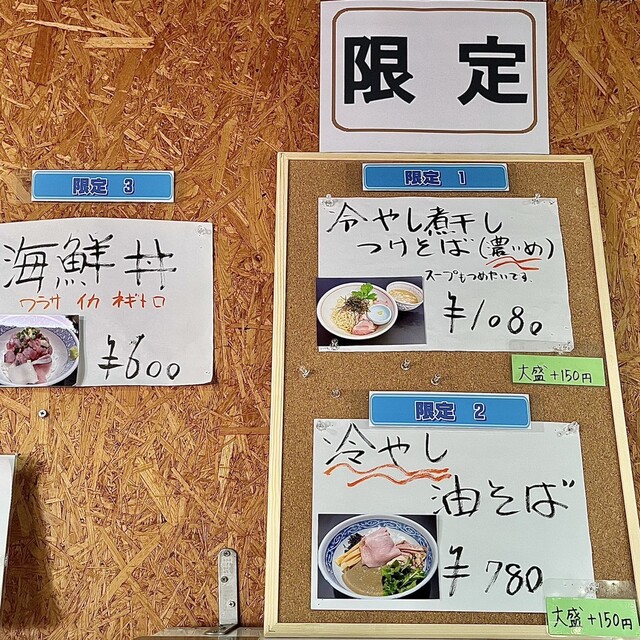 限定
限定 1
冷やし煮干し
つけそば(濃いめ)
スープもつめたいです。
¥1080
大盛+150円
限定 2
冷やし
油そば
¥780
大盛+150円
限定 3
海鮮丼
ワラサ イカ ネギトロ
¥600